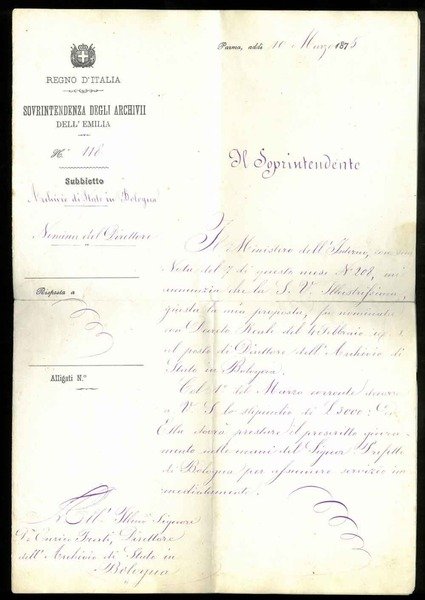 REGNO D'ITALIA
SOVRINTENDENZA DEGLI ARCHIVII
DELL'EMILIA
N.° 118
Subbietto
Archivio di Stato in Bologna
Nomina del Direttore
Risposta a
Alligati N.°
Parma, addì 10 Marzo 1875
Il Soprintendente
Il Ministero dell'Interno, con sua
Nota del 7 di questo mese N° 208, mi
annunzia che la S. V. Illustrissima,
giusta la mia proposta, fu nominata
con Decreto Reale del 14 febbraio
al posto di Direttore dell'Archivio di
Stato in Bologna.
Col 1° del Marzo corrente decorre
a V. S. lo stipendio di L 3000
Ella dovrà prestare il prescritto giura-
mento nelle mani del Signor Prefetto
di Bologna per assumere servizio im-
mediatamente.
All' Illmo Signore
D. Enrico Direttore
dell'Archivio di Stato in
Bologna